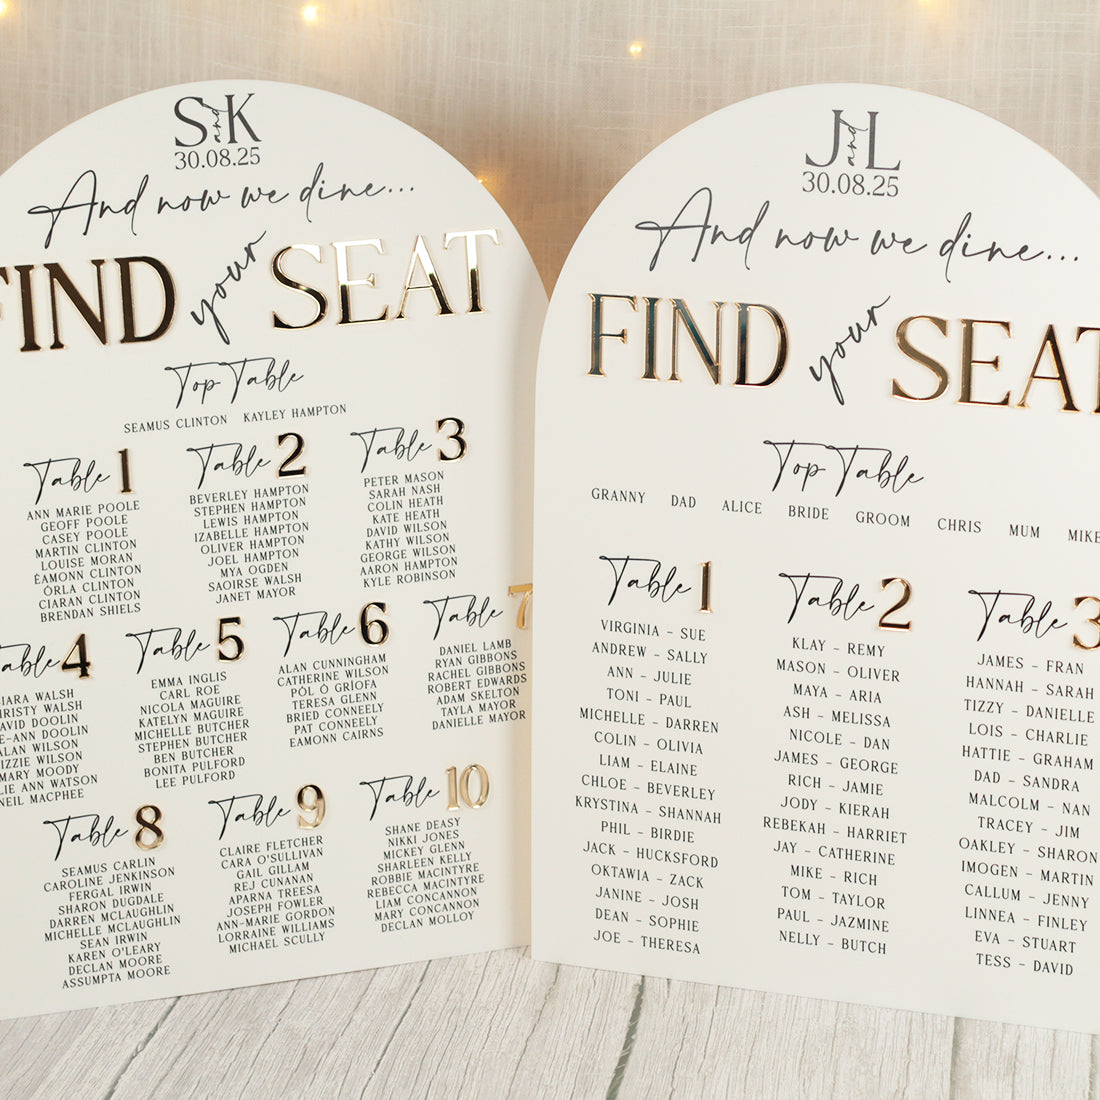 S and K
30.08.25
And now we dine...
FIND your SEAT
Top Table
SEAMUS CLINTON KAYLEY HAMPTON
Table 1
ANN MARIE POOLE
GEOFF POOLE
CASEY POOLE
MARTIN CLINTON
LOUISE MORAN
ÈAMONN CLINTON
ÓRLA CLINTON
CIARAN CLINTON
BRENDAN SHIELS
Table 2
BEVERLEY HAMPTON
STEPHEN HAMPTON
LEWIS HAMPTON
IZABELLE HAMPTON
OLIVER HAMPTON
JOEL HAMPTON
MYA OGDEN
SAOIRSE WALSH
JANET MAYOR
Table 3
PETER MASON
SARAH NASH
COLIN HEATH
KATE HEATH
DAVID WILSON
KATHY WILSON
GEORGE WILSON
AARON HAMPTON
KYLE ROBINSON
Table 4
IARA WALSH
HRISTY WALSH
AVID DOOLIN
E-ANN DOOLIN
ALAN WILSON
IZZIE WILSON
MARY MOODY
LIE ANN WATSON
NEIL MACPHEE
Table 5
EMMA INGLIS
CARL ROE
NICOLA MAGUIRE
KATELYN MAGUIRE
MICHELLE BUTCHER
STEPHEN BUTCHER
BEN BUTCHER
BONITA PULFORD
LEE PULFORD
Table 6
ALAN CUNNINGHAM
CATHERINE WILSON
PÓL Ó GRÍOFA
TERESA GLENN
BRIED CONNEELY
PAT CONNEELY
EAMONN CAIRNS
Table 7
DANIEL LAMB
RYAN GIBBONS
RACHEL GIBBONS
ROBERT EDWARDS
ADAM SKELTON
TAYLA MAYOR
DANIELLE MAYOR
Table 8
SEAMUS CARLIN
CAROLINE JENKINSON
FERGAL IRWIN
SHARON DUGDALE
DARREN MCLAUGHLIN
MICHELLE MCLAUGHLIN
SEAN IRWIN
KAREN O'LEARY
DECLAN MOORE
ASSUMPTA MOORE
Table 9
CLAIRE FLETCHER
CARA O'SULLIVAN
GAIL GILLAM
REJ CUNANAN
APARNA TREESA
JOSEPH FOWLER
ANN-MARIE GORDON
LORRAINE WILLIAMS
MICHAEL SCULLY
Table 10
SHANE DEASY
NIKKI JONES
MICKEY GLENN
SHARLEEN KELLY
ROBBIE MACINTYRE
REBECCA MACINTYRE
LIAM CONCANNON
MARY CONCANNON
DECLAN MOLLOY
J and L
30.08.25
And now we dine...
FIND your SEAT
Top Table
GRANNY DAD ALICE BRIDE GROOM CHRIS MUM MIKE
Table 1
VIRGINIA – SUE
ANDREW – SALLY
ANN – JULIE
TONI – PAUL
MICHELLE – DARREN
COLIN – OLIVIA
LIAM – ELAINE
CHLOE – BEVERLEY
KRYSTINA – SHANNAH
PHIL – BIRDIE
JACK – HUCKSFORD
OKTAWIA – ZACK
JANINE – JOSH
DEAN – SOPHIE
JOE – THERESA
Table 2
KLAY – REMY
MASON – OLIVER
MAYA – ARIA
ASH – MELISSA
NICOLE – DAN
JAMES – GEORGE
RICH – JAMIE
JODY – KIERAH
REBEKAH – HARRIET
JAY – CATHERINE
MIKE – RICH
TOM – TAYLOR
PAUL – JAZMINE
NELLY – BUTCH
Table 3
JAMES – FRAN
HANNAH – SARAH
TIZZY – DANIELLE
LOIS – CHARLIE
HATTIE – GRAHAM
DAD – SANDRA
MALCOLM – NAN
TRACEY – JIM
OAKLEY – SHARON
IMOGEN – MARTIN
CALLUM – JENNY
LINNEA – FINLEY
EVA – STUART
TESS – DAVID